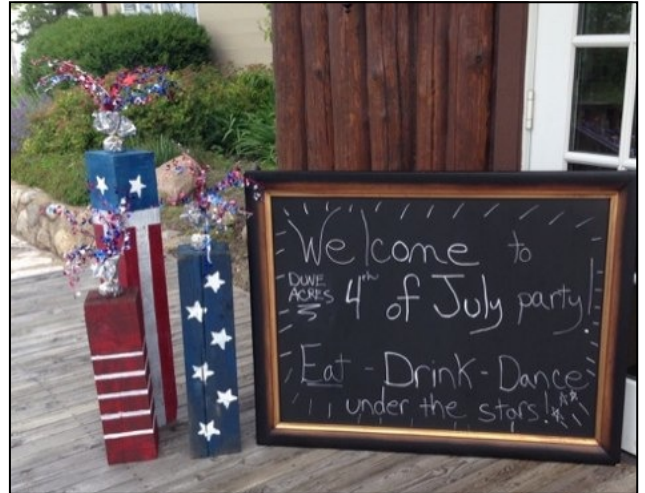 Welcome to
DUNE ACRES 4th of July party!
Eat - Drink - Dance
under the stars!